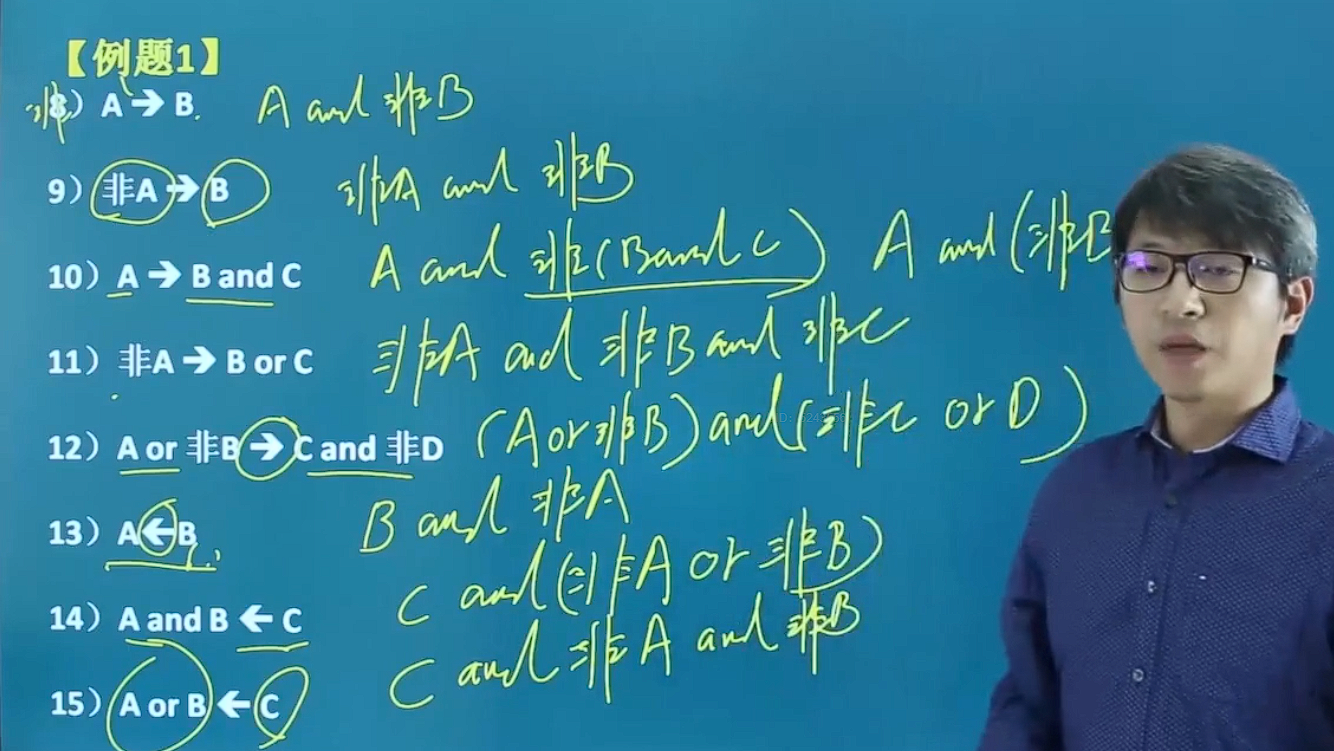 【例题1】
非8）A → B. A and 非B
9）非A → B 非A and 非B
10）A → B and C A and 非(B and C) A and (非B
11）非A → B or C 非A and 非B and 非C
12）A or 非B → C and 非D (A or 非B) and (非C or D)
13）A ← B B and 非A
14）A and B ← C C and (非A or 非B)
15）A or B ← C C and 非A and 非B